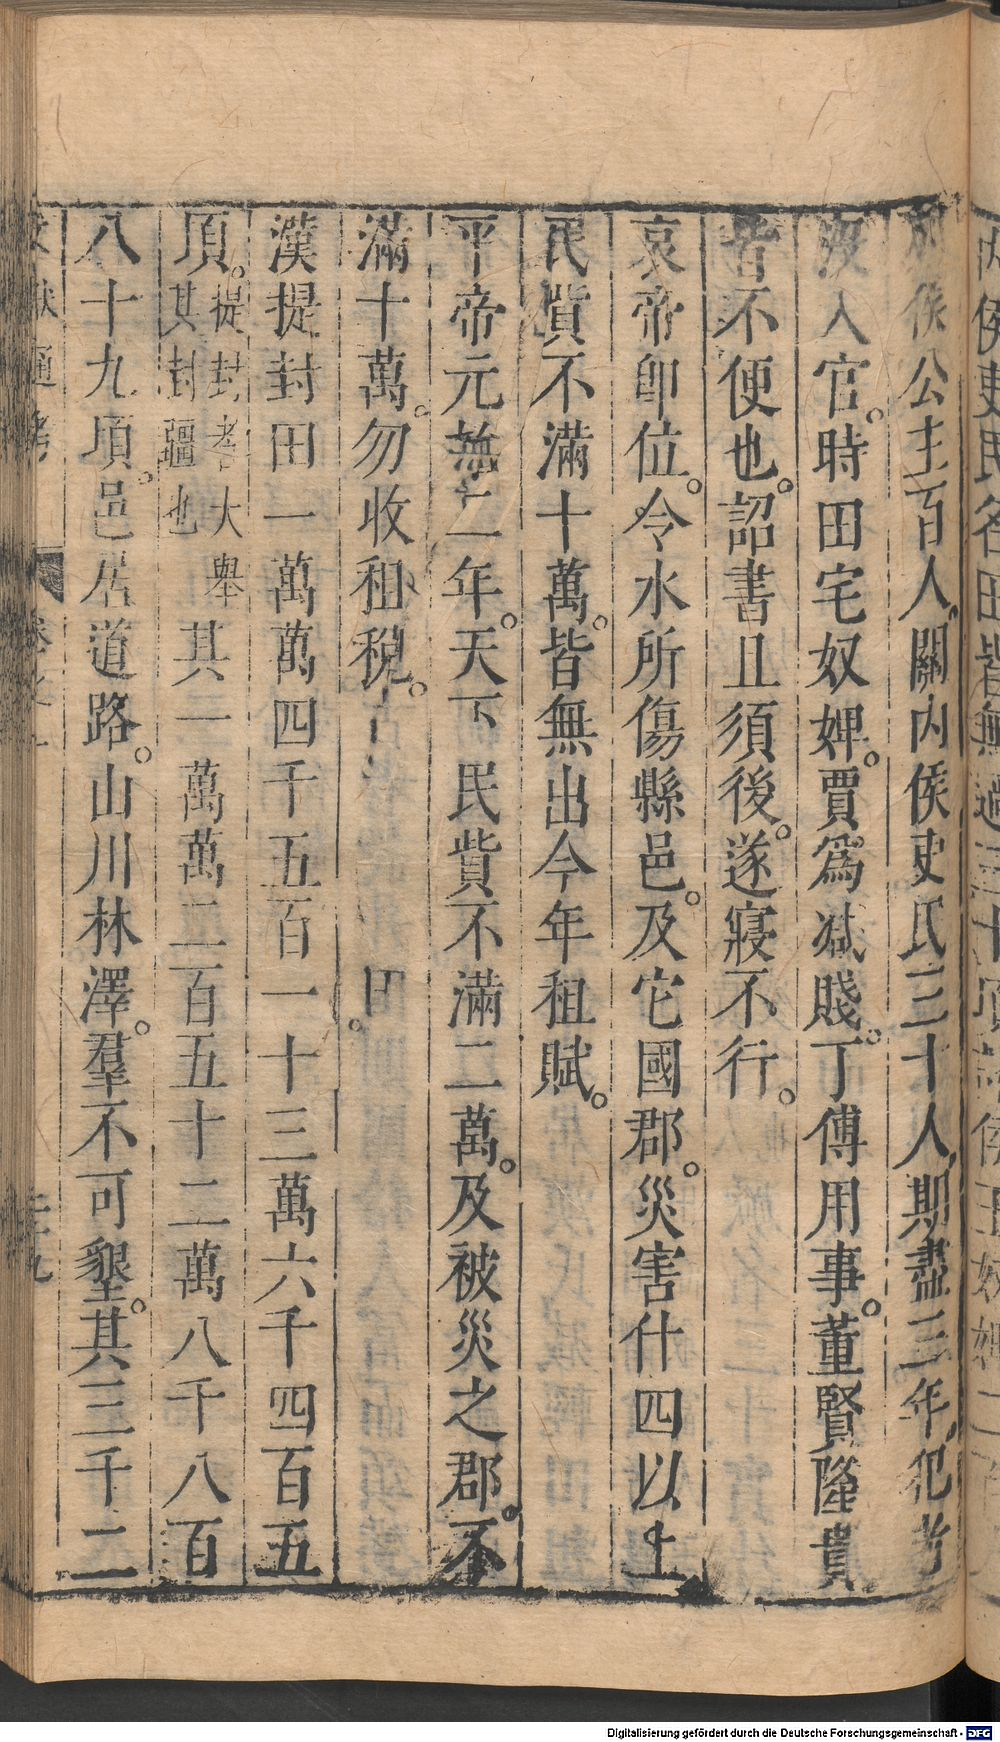 列侯公主百人關內侯吏民三十人期盡三年犯者
沒入官時田宅奴婢賈爲減賤丁傅用事董賢隆貴
皆不便也詔書且須後遂寢不行
哀帝卽位令水所傷縣邑及它國郡災害什四以上
民貲不滿十萬皆無出今年租賦
平帝元無二年天下民貲不滿二萬及被災之郡不
滿十萬勿收租稅
漢提封田一萬萬四千五百一十三萬六千四百五
頃提封者大舉其封疆也其一萬萬二百五十二萬八千八百
八十九頃邑居道路山川林澤羣不可墾其三千二
文獻通考 卷之一 二十九
Digitalisierung gefördert durch die Deutsche Forschungsgemeinschaft - DFG